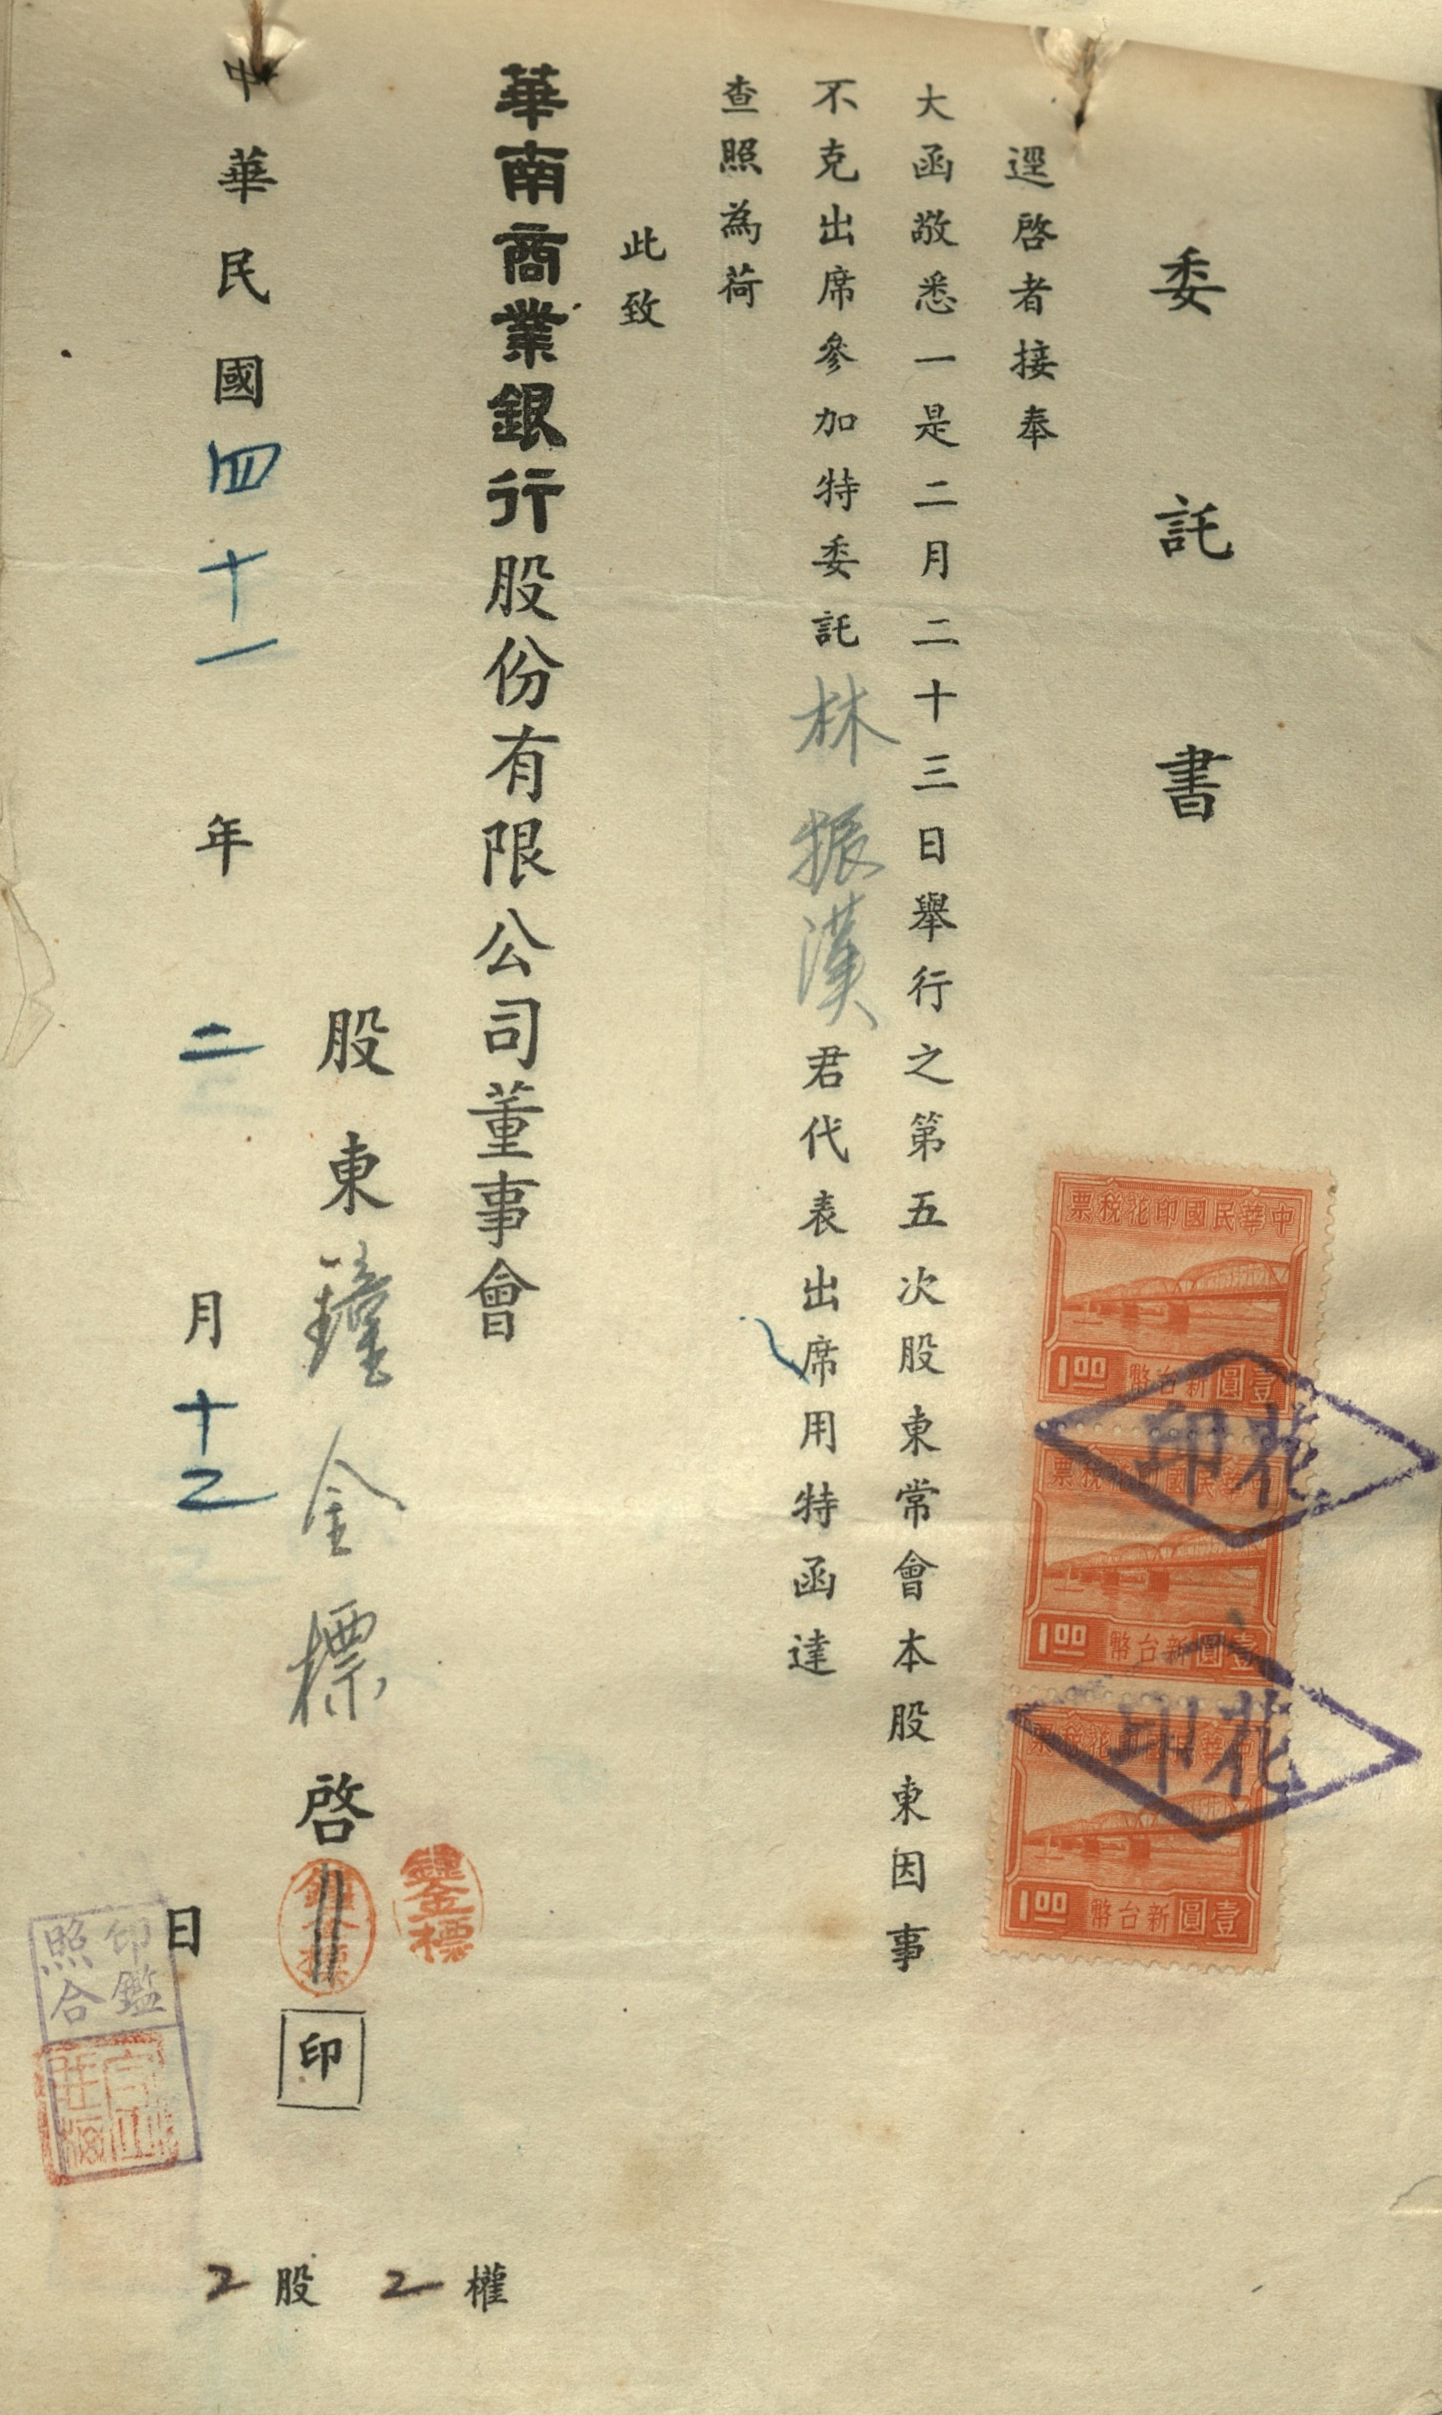 委託書
逕啓者接奉
大函敬悉一是二月二十三日舉行之第五次股東常會本股東因事
不克出席參加特委託林振漢君代表出席用特函達
查照為荷
此致
華南商業銀行股份有限公司董事會
股東鐘金標啓
印
中華民國四十一年二月十二日
2股 2權
中華民國印花稅票
壹圓新台幣 1.00
花印
中華民國印花稅票
壹圓新台幣 1.00
花印
中華民國印花稅票
壹圓新台幣 1.00
金標
印鑑
照合